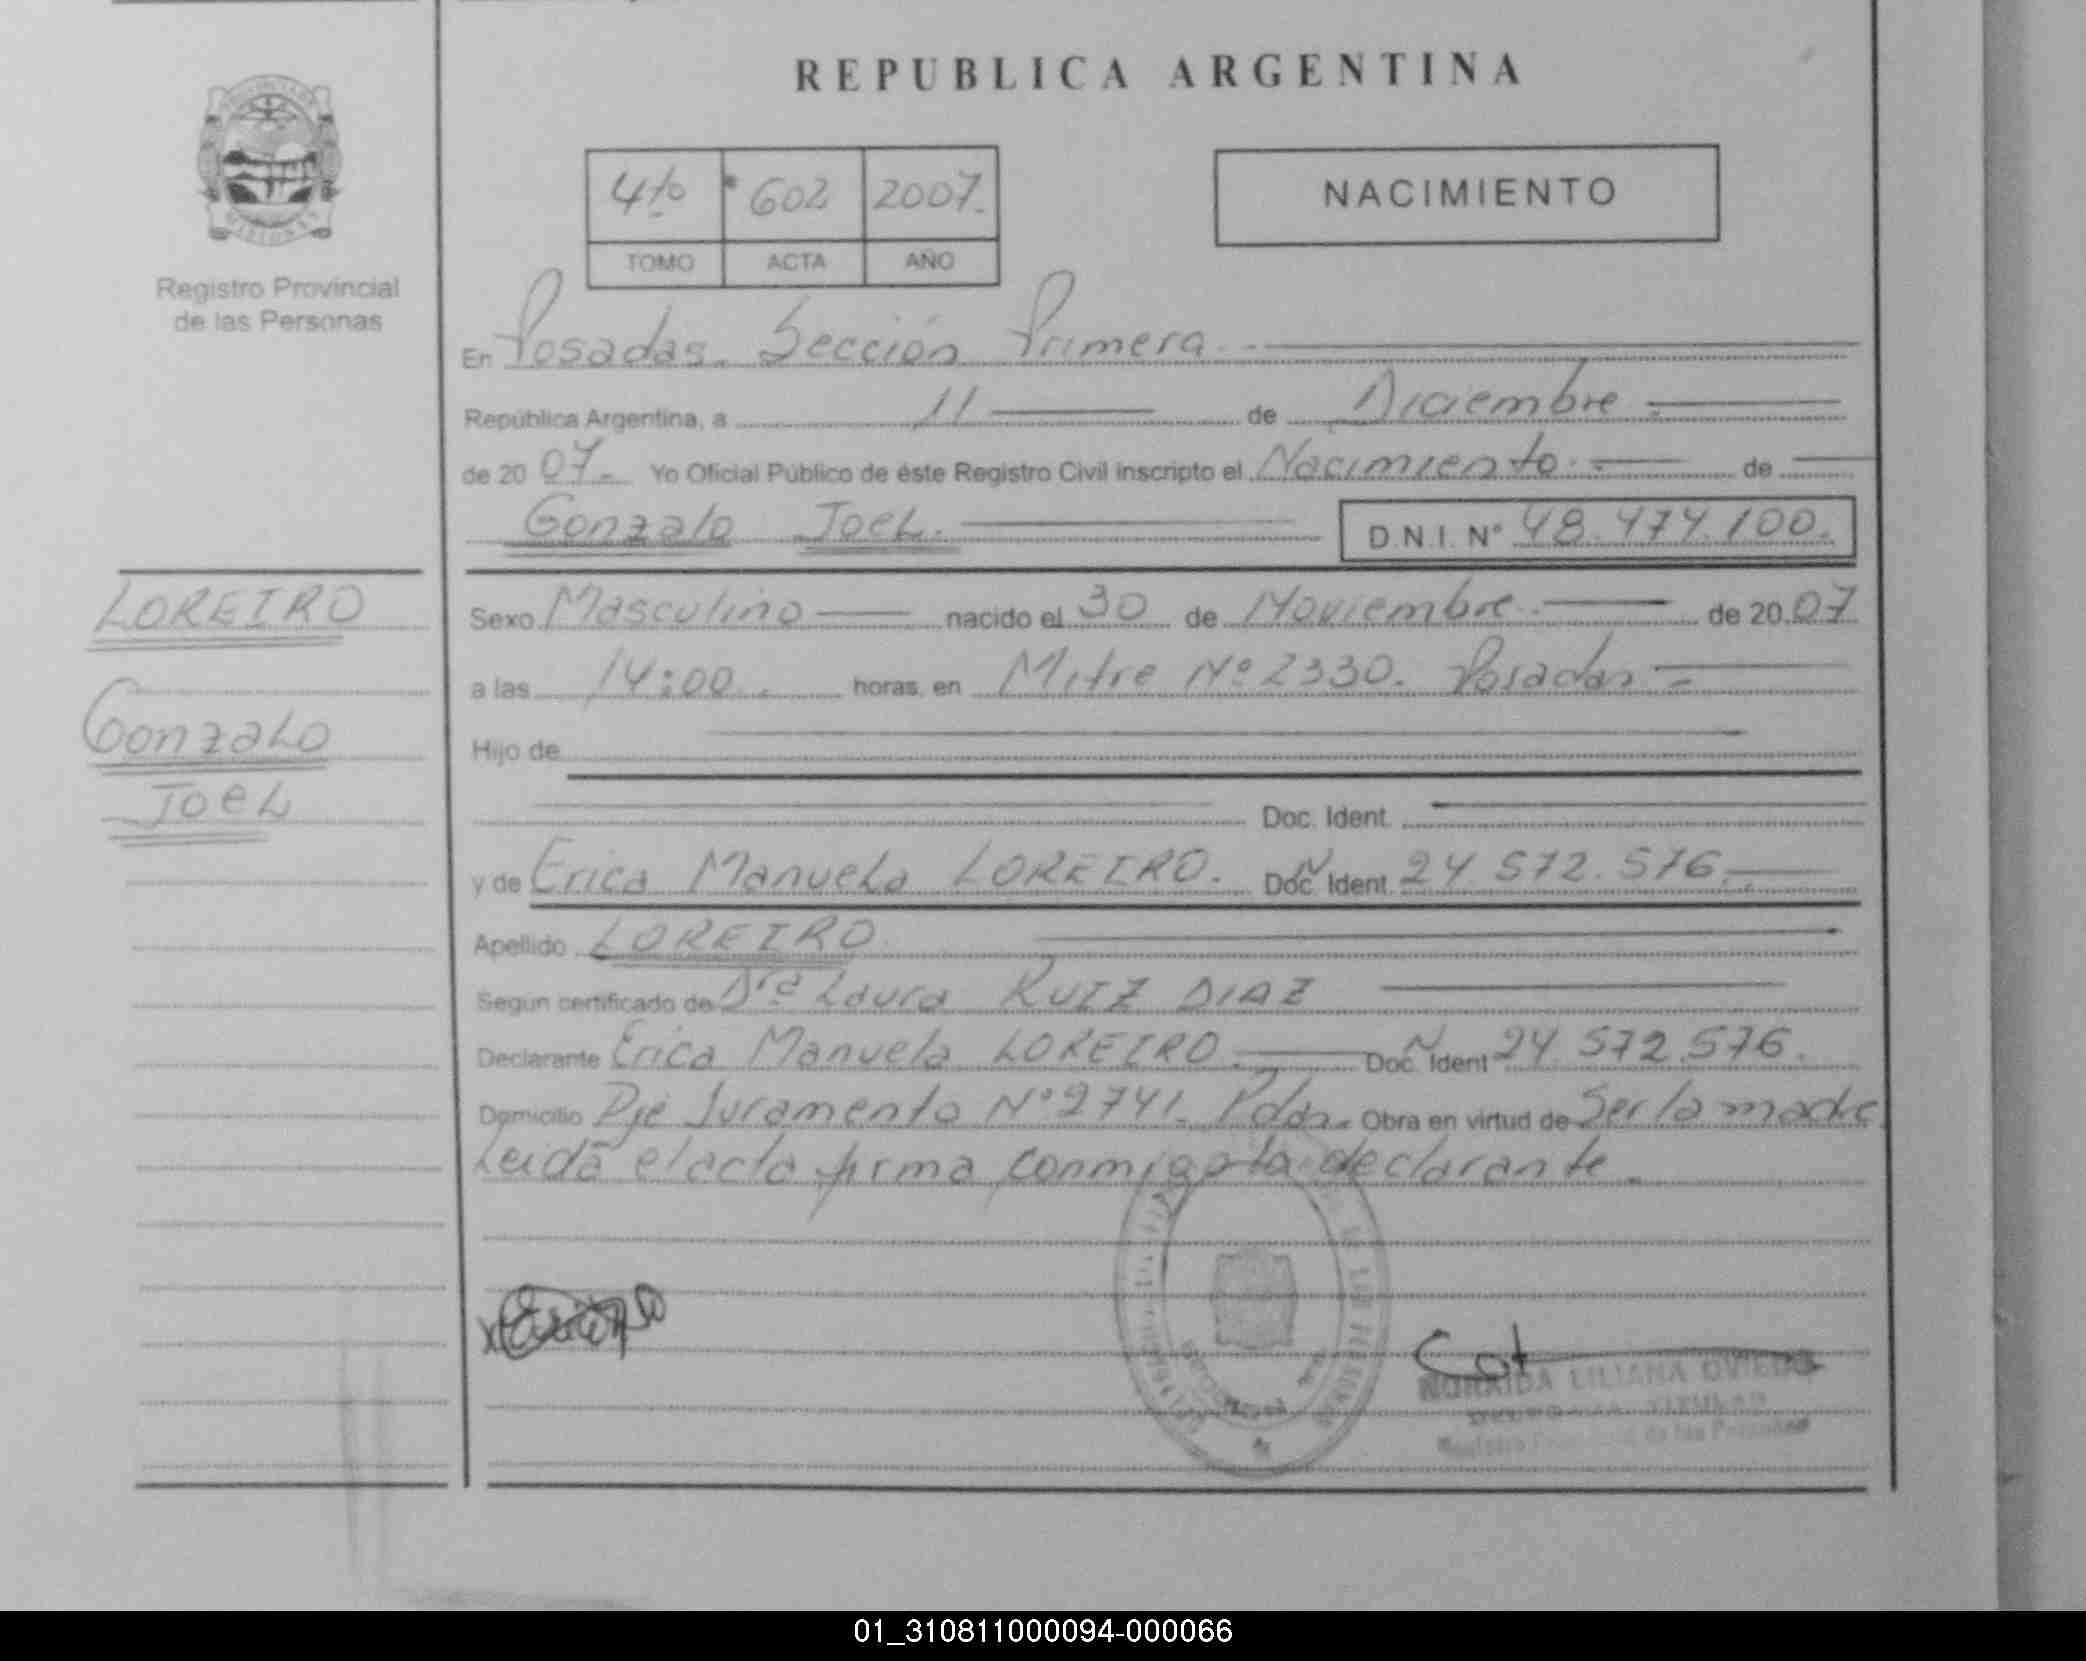 REPUBLICA ARGENTINA
4to 602 2007.
TOMO ACTA AÑO
NACIMIENTO
Registro Provincial
de las Personas
En Posadas. Sección Primera
República Argentina, a 11 de Diciembre
de 2007. Yo Oficial Público de éste Registro Civil inscripto el Nacimiento de
Gonzalo Joel. D.N.I. N° 48.474.100.
LOREIRO
Gonzalo
Joel
Sexo Masculino nacido el 30 de Noviembre de 2007
a las 14:00. horas, en Mitre N° 2330. Posadas
Hijo de
Doc. Ident.
y de Erica Manuela LOREIRO. Doc. Ident. N 24.572.576
Apellido LOREIRO
Según certificado de Dra Laura RUIZ DIAZ
Declarante Erica Manuela LOREIRO Doc. Ident N 24.572.576.
Domicilio Pje Juramento N° 2741. Pdas. Obra en virtud de Ser la madre
Leida el acta firma conmigo la declarante.
LILIANA OVIEDO
TITULAR
Registro Provincial de las Personas
01_310811000094-000066